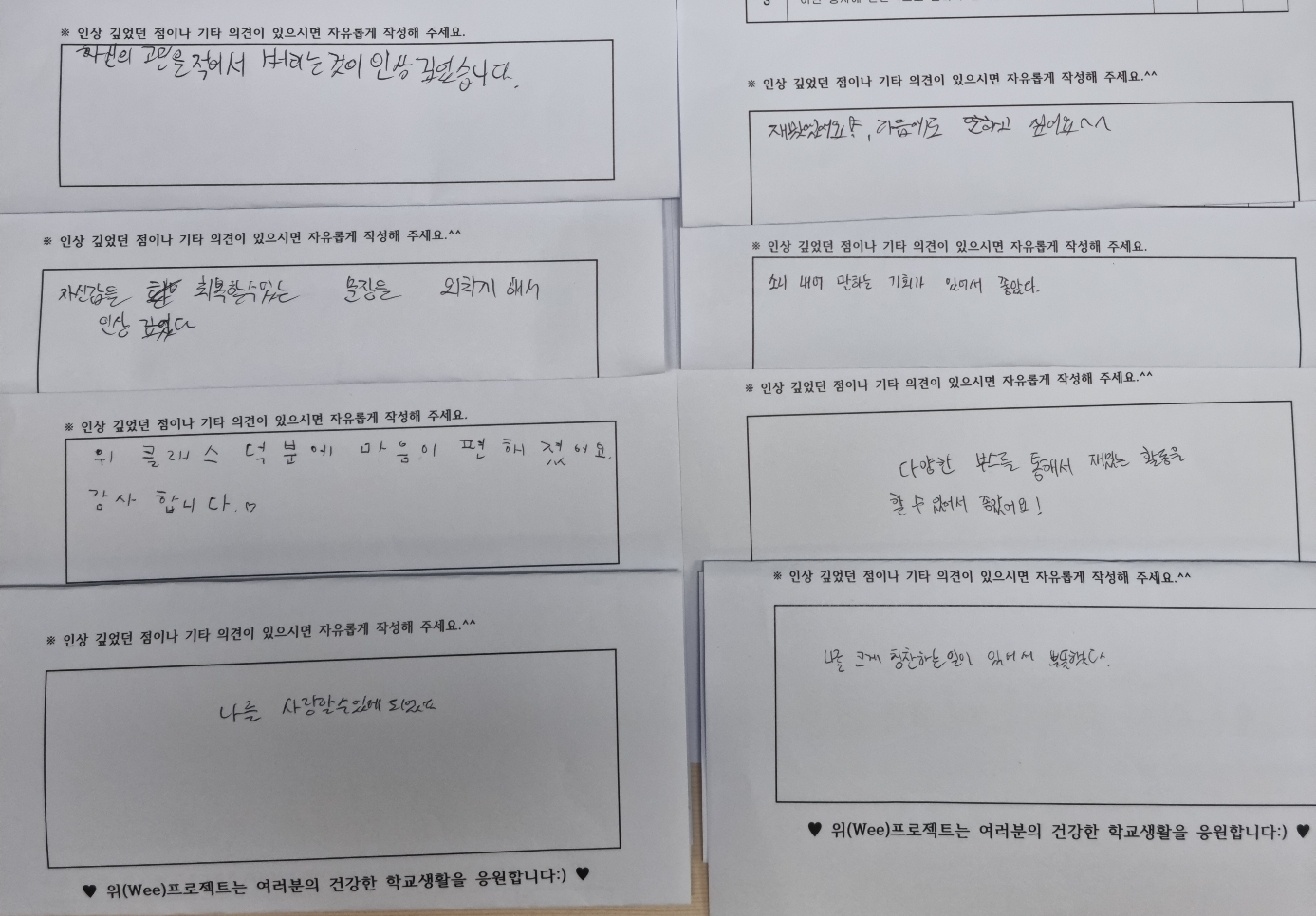 ※ 인상 깊었던 점이나 기타 의견이 있으시면 자유롭게 작성해 주세요.
자신의 고민을 적어서 버리는 것이 인상 깊었습니다.
※ 인상 깊었던 점이나 기타 의견이 있으시면 자유롭게 작성해 주세요.^^
자신감을 회복할수있는 문장을 외치게 해서
인상 깊었다
※ 인상 깊었던 점이나 기타 의견이 있으시면 자유롭게 작성해 주세요.
위 클래스 덕분에 마음이 편해 졌어요.
감사 합니다.♡
※ 인상 깊었던 점이나 기타 의견이 있으시면 자유롭게 작성해 주세요.^^
나를 사랑할수있게 되었따
♥ 위(Wee)프로젝트는 여러분의 건강한 학교생활을 응원합니다:) ♥
※ 인상 깊었던 점이나 기타 의견이 있으시면 자유롭게 작성해 주세요.^^
재밌었어요!, 다음에도 또하고 싶어요^^
※ 인상 깊었던 점이나 기타 의견이 있으시면 자유롭게 작성해 주세요.
소리 내어 말하는 기회가 있어서 좋았다.
※ 인상 깊었던 점이나 기타 의견이 있으시면 자유롭게 작성해 주세요.^^
다양한 부스를 통해서 재밌는 활동을
할 수 있어서 좋았어요!
※ 인상 깊었던 점이나 기타 의견이 있으시면 자유롭게 작성해 주세요.^^
나를 크게 칭찬하는 일이 있어서 뿌듯했다.
♥ 위(Wee)프로젝트는 여러분의 건강한 학교생활을 응원합니다:) ♥